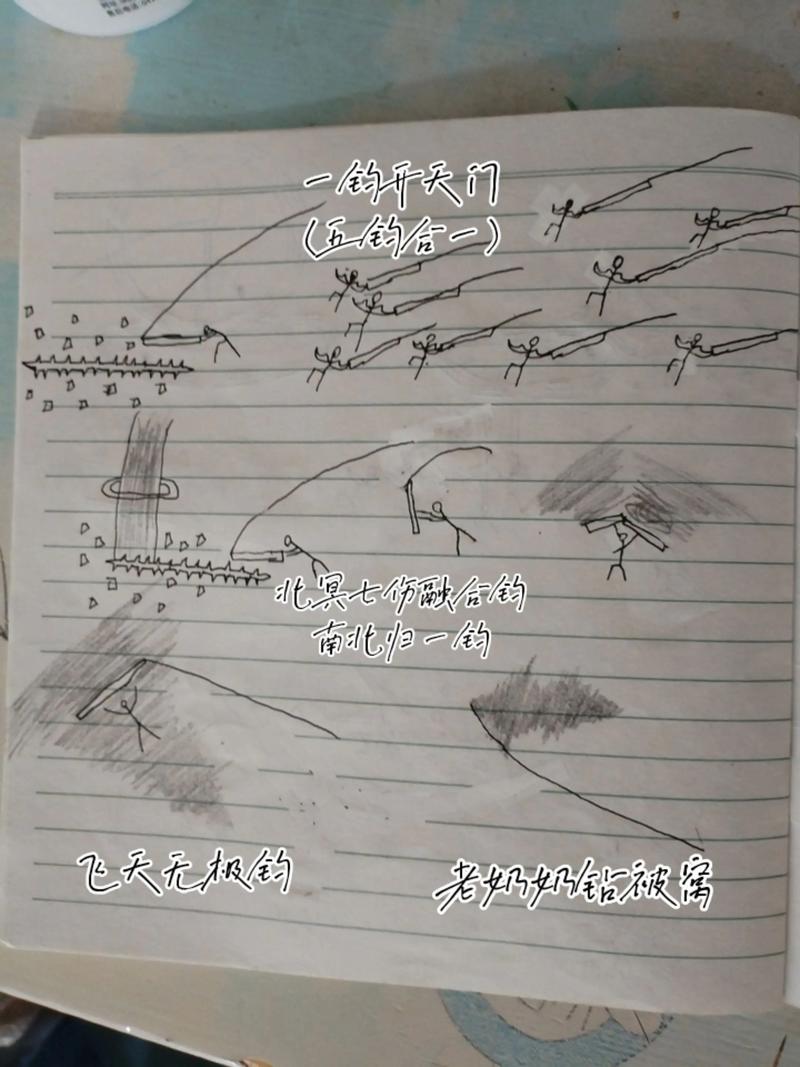 一钓开天门
(五钓合一)
北冥七伤融合钓
南北归一钓
飞天无极钓
老奶奶钻被窝